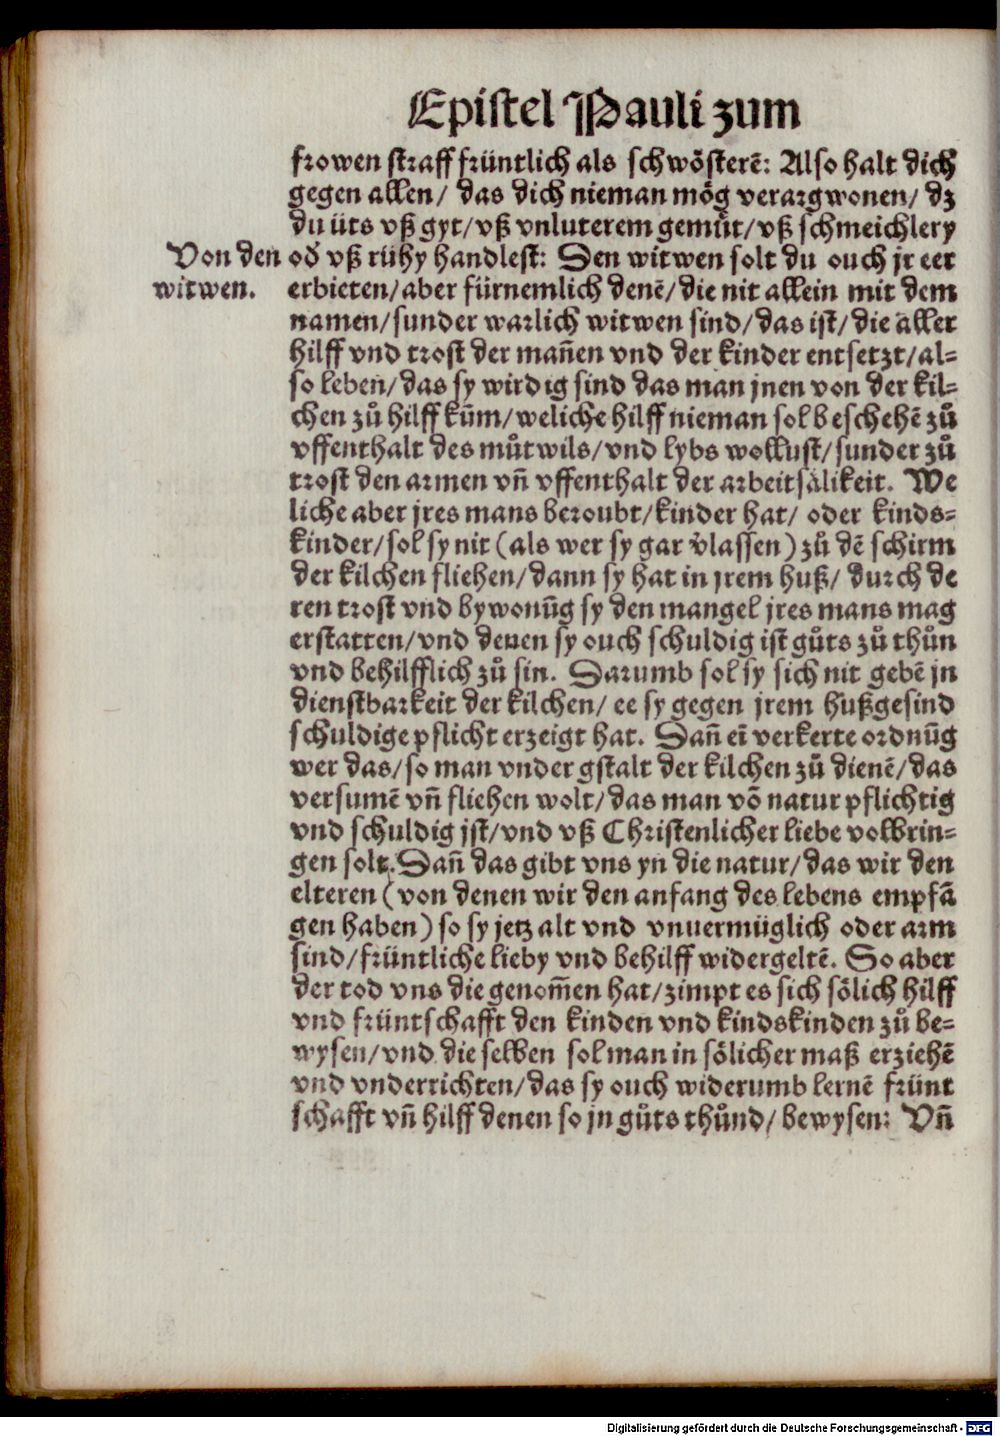 Epistel Pauli zum
frowen straff früntlich als schwösterē: Also halt dich
gegen allen/ das dich nieman mög verargwonen/ dz
du üts vß gyt/ vß vnluterem gemüt/ vß schmeichlery
Von den
witwen.
od̛ vß rühy handlest: Den witwen solt du ouch jr eer
erbieten/ aber fürnemlich denē/ die nit allein mit dem
namen/ sunder warlich witwen sind/ das ist/ die aller
hilff vnd trost der mañen vnd der kinder entsetzt/ al=
so leben/ das sy wirdig sind das man jnen von der kil=
chen zů hilff kūm/ weliche hilff nieman sol beschehē zů
vffenthalt des můtwils/ vnd lybs wollust/ sunder zů
trost den armen vñ vffenthalt der arbeitsälikeit. We
liche aber jres mans beroubt/ kinder hat/ oder kinds=
kinder/ sol sy nit (als wer sy gar v̛lassen) zů dē schirm
der kilchen fliehen/ dann sy hat in jrem huß/ durch de
ren trost vnd bywonūg sy den mangel jres mans mag
erstatten/ vnd denen sy ouch schuldig ist gůts zů thůn
vnd behilfflich zů sin. Darumb sol sy sich nit gebē jn
dienstbarkeit der kilchen/ ee sy gegen jrem hußgesind
schuldige pflicht erzeigt hat. Dañ eī verkerte ordnūg
wer das/ so man vnder gstalt der kilchen zů dienē/ das
versumē vñ fliehen wolt/ das man vō natur pflichtig
vnd schuldig jst/ vnd vß Christenlicher liebe volbrin=
gen solt. Dañ das gibt vns yn die natur/ das wir den
elteren (von denen wir den anfang des lebens empfā
gen haben) so sy jetz alt vnd vnuermüglich oder arm
sind/ früntliche lieby vnd behilff widergeltē. So aber
der tod vns die genom̄en hat/ zimpt es sich sölich hilff
vnd früntschafft den kinden vnd kindskinden zů be=
wysen/ vnd die selben sol man in sölicher maß erziehē
vnd vnderrichten/ das sy ouch widerumb lernē frünt
schafft vñ hilff denen so jn gůts thůnd/ bewysen: Vñ
Digitalisierung gefördert durch die Deutsche Forschungsgemeinschaft - DFG